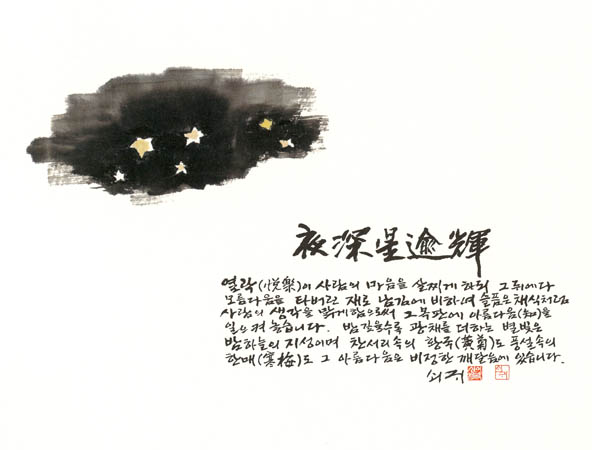 夜深星逾輝
열락(悅樂)이 사람의 마음을 살찌게 하되 그 뒤에다
모름다움을 타버린 재로 남김에 비하여 슬픔은 채식처럼
사람의 생각을 맑게 함으로써 그 복판에 아름다움(知)을
일으켜 놓습니다. 밤 깊을수록 광채를 더하는 별빛은
밤하늘의 지성이며 찬서리 속의 황국(黃菊)도 풍설 속의
한매(寒梅)도 그 아름다움은 비정한 깨달음에 있습니다.
쇠귀